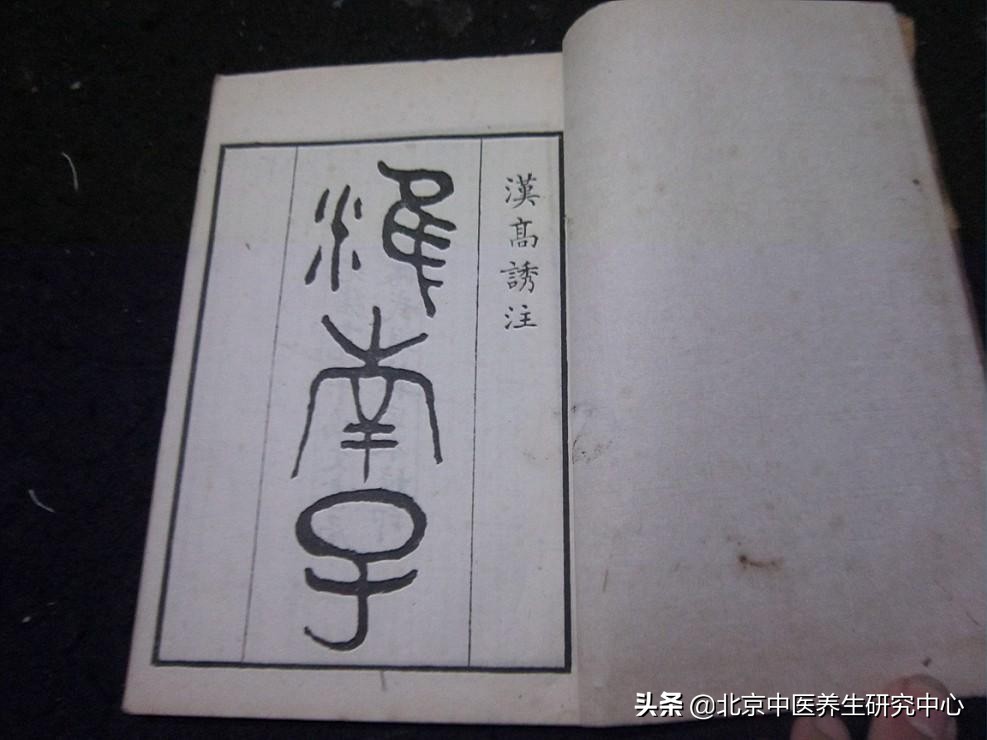 漢高誘注
淮南子
头条 @北京中医养生研究中心